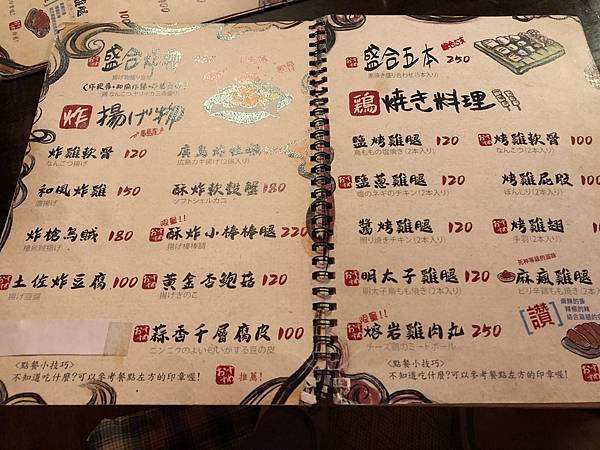 盛合炸物
揚げ物
炸
炸雞軟骨 120
なんこつ揚げ
廣島炸牡蠣
広島カキ揚げ(2個入り)
和風炸雞 150
唐揚げ
酥炸軟殼蟹 180
ソフトシェルカニ
炸槍烏賊 180
槍烏賊揚げ
限量!!
酥炸小棒棒腿 220
揚げ棒棒腿
土佐炸豆腐 100
揚げ豆腐
黃金杏鮑菇 120
揚げきのこ
蒜香千層腐皮 100
ニンニクのよい匂いがする豆の皮
<點餐小技巧>
不知道吃什麼?可以參考餐點左方的印章喔!
推薦!
盛合五本 250
串焼き盛り合わせ(5本入り)
鶏 焼き料理
鹽烤雞腿 120
鳥ももの塩焼き(2本入り)
烤雞軟骨 100
なんこつ(2本入り)
鹽蔥雞腿 120
塩のネギのチキン(2本入り)
烤雞屁股
ぼんじり(2本入り)
醬烤雞腿 120
照り焼きチキン(2本入り)
烤雞翅
手羽(2本入り)
明太子雞腿 120
明太子鳥もも焼き(2本入り)
麻瘋雞腿
ピリ辛鶏もも焼き(2本入り)
限量!!
熔岩雞肉丸 250
チーズ鶏のミートボール
[讚]
麻辣的香
辣椒的辣
<點餐小技巧>
不知道吃什麼?可以參考餐點左方的印章喔!